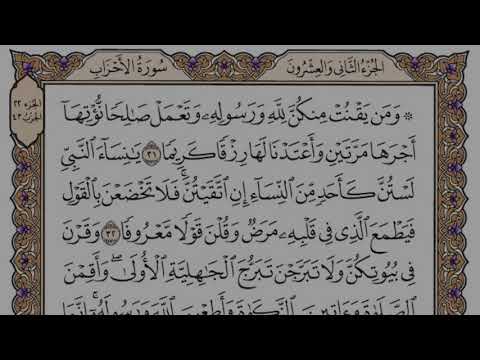 الجُزْءُ الثَّانِي وَالعِشْرُونَ
سُورَةُ الأَحْزَابِ
الجزء ٢٢
الحزب ٤٣
۞ وَمَن يَقْنُتْ مِنكُنَّ لِلَّهِ وَرَسُولِهِۦ وَتَعْمَلْ صَٰلِحًا نُّؤْتِهَآ
أَجْرَهَا مَرَّتَيْنِ وَأَعْتَدْنَا لَهَا رِزْقًا كَرِيمًا ٣١ يَٰنِسَآءَ ٱلنَّبِيِّ
لَسْتُنَّ كَأَحَدٍ مِّنَ ٱلنِّسَآءِ إِنِ ٱتَّقَيْتُنَّۚ فَلَا تَخْضَعْنَ بِٱلْقَوْلِ
فَيَطْمَعَ ٱلَّذِي فِي قَلْبِهِۦ مَرَضٌ وَقُلْنَ قَوْلًا مَّعْرُوفًا ٣٢ وَقَرْنَ
فِي بُيُوتِكُنَّ وَلَا تَبَرَّجْنَ تَبَرُّجَ ٱلْجَٰهِلِيَّةِ ٱلْأُولَىٰۖ وَأَقِمْنَ
ٱلصَّلَوٰةَ وَءَاتِينَ ٱلزَّكَوٰةَ وَأَطِعْنَ ٱللَّهَ وَرَسُولَهُۥٓۚ إِنَّمَا